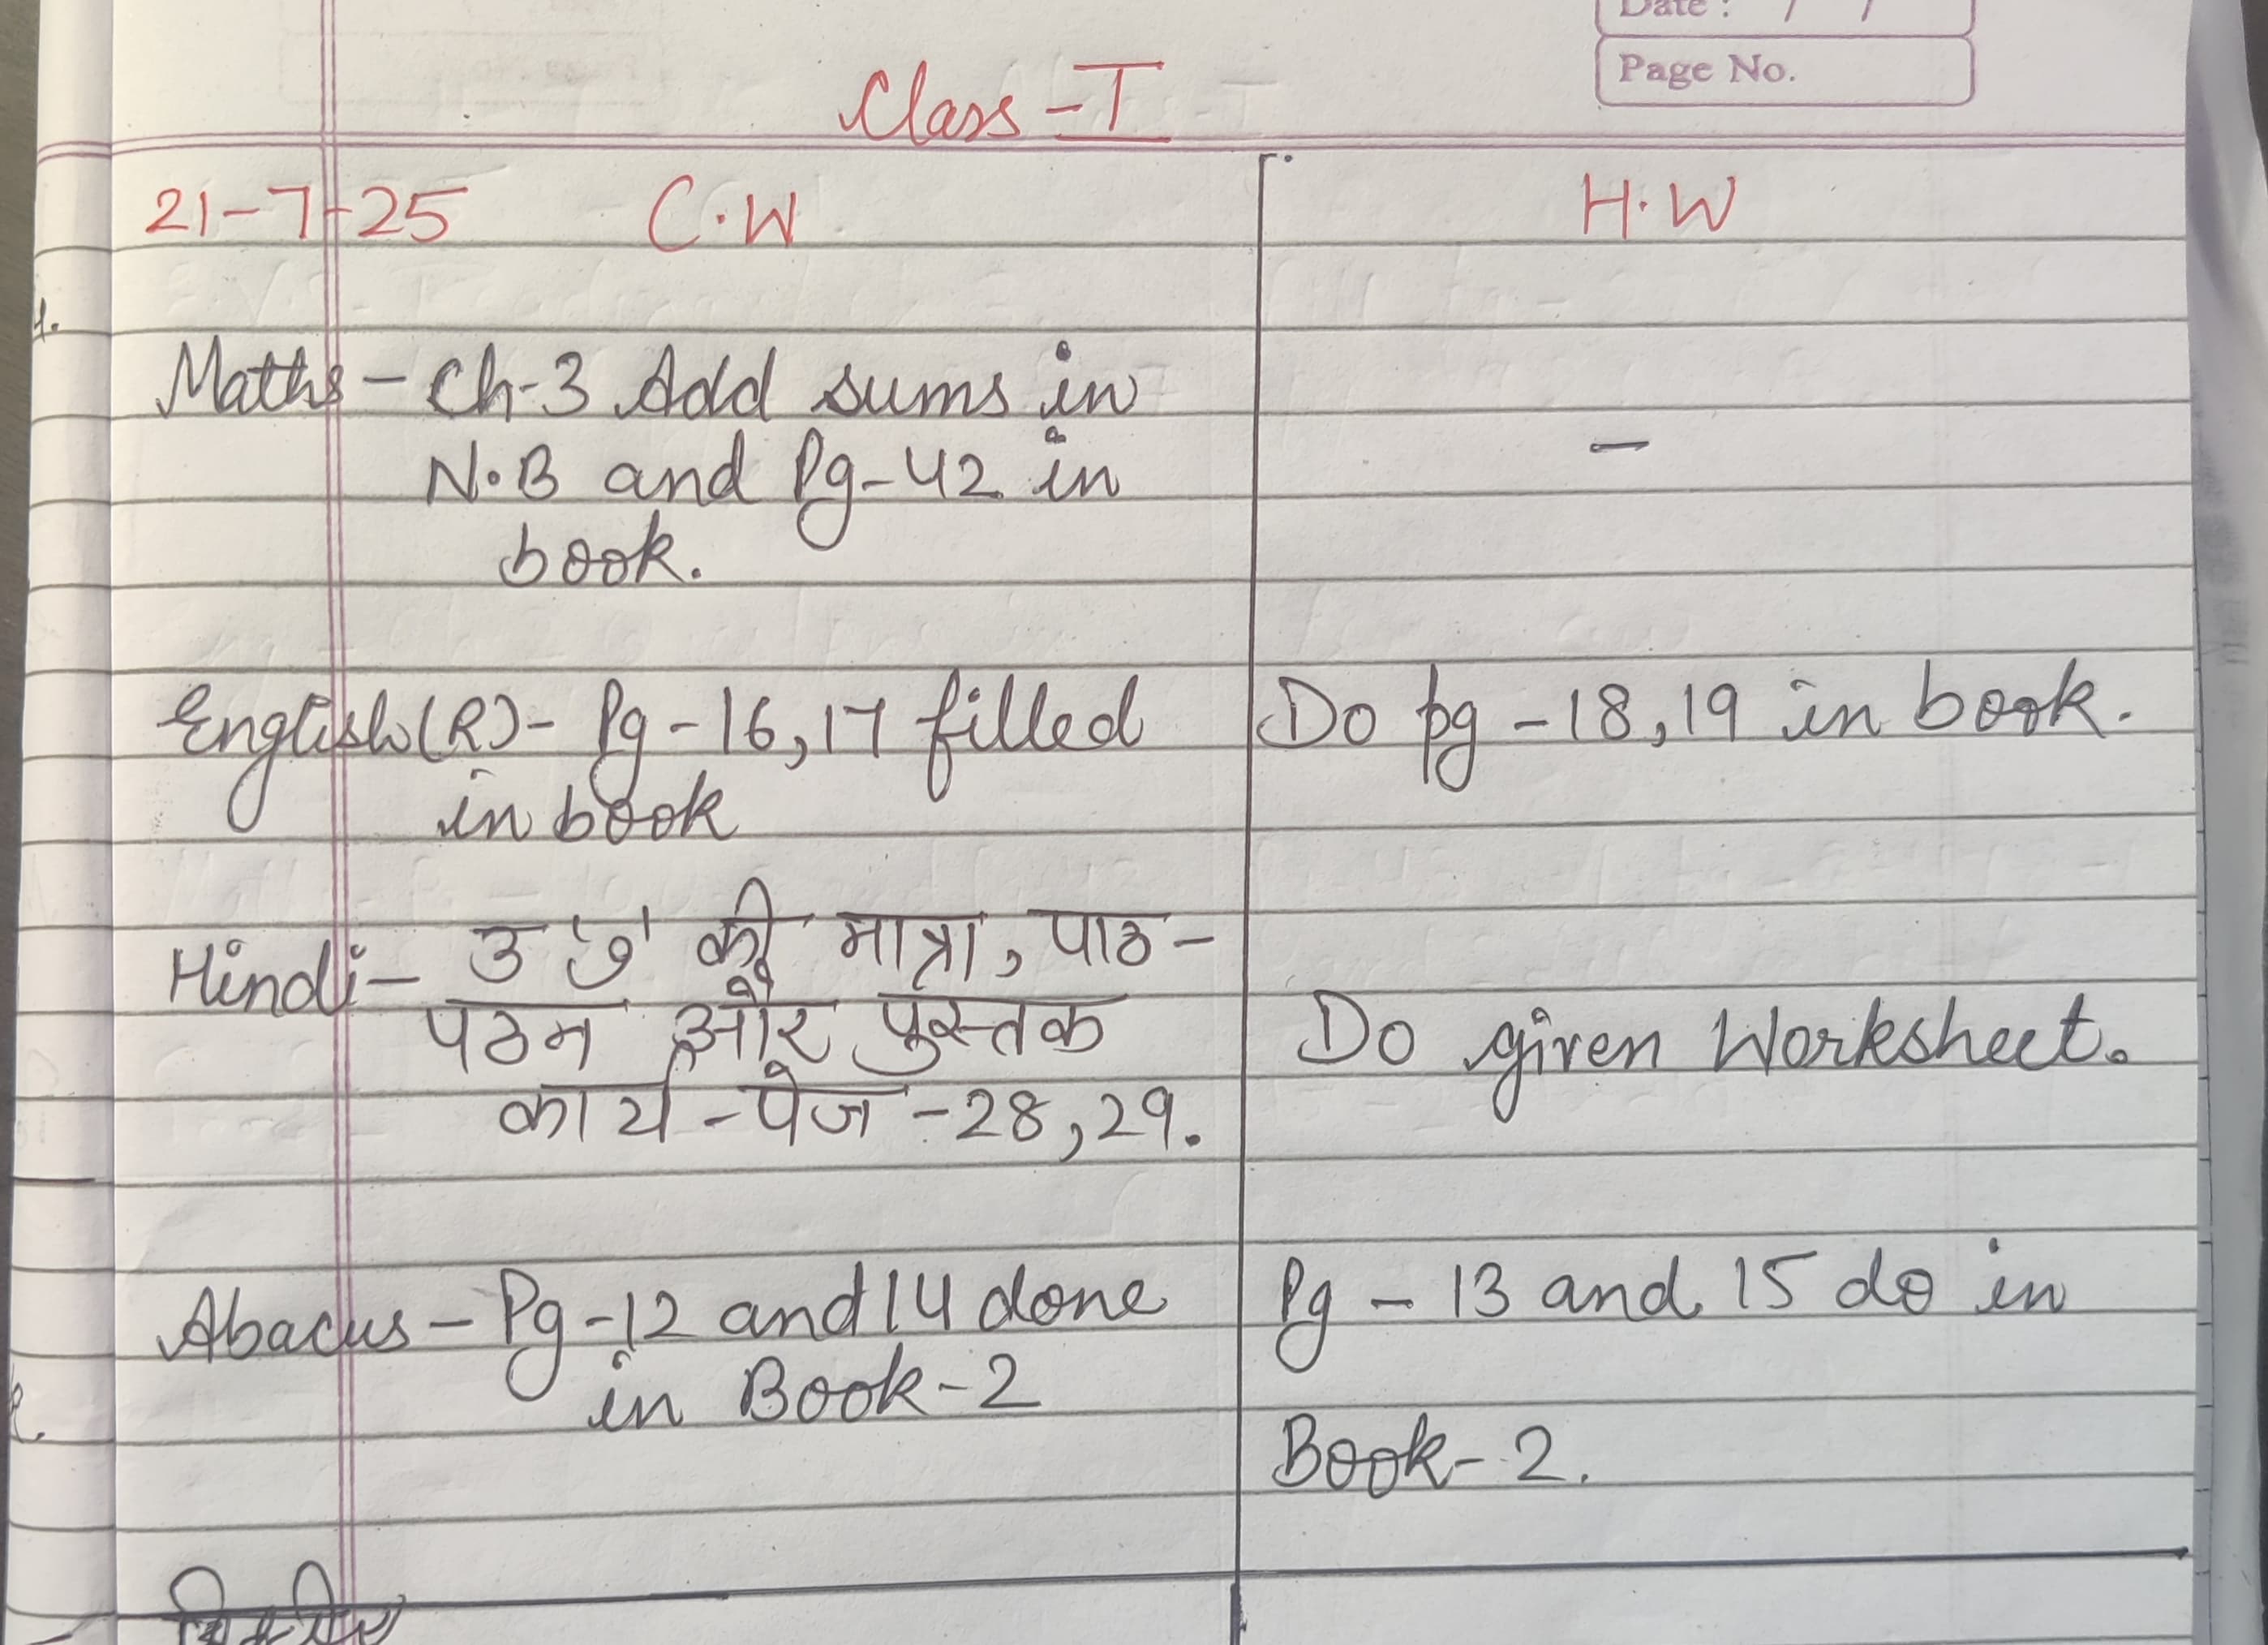 Date : / /
Page No.
Class - I
21-7-25 C.W
H.W
Maths - Ch-3 Add sums in
N.B and Pg-42 in
book.
-
English(R)- Pg-16,17 filled
in book
Do pg -18,19 in book.
Hindi- उ 'ु' की मात्रा, पाठ-
पठन और पुस्तक
कार्य -पेज -28,29.
Do given Worksheet.
Abacus - Pg-12 and 14 done
in Book-2
Pg - 13 and 15 do in
Book- 2.